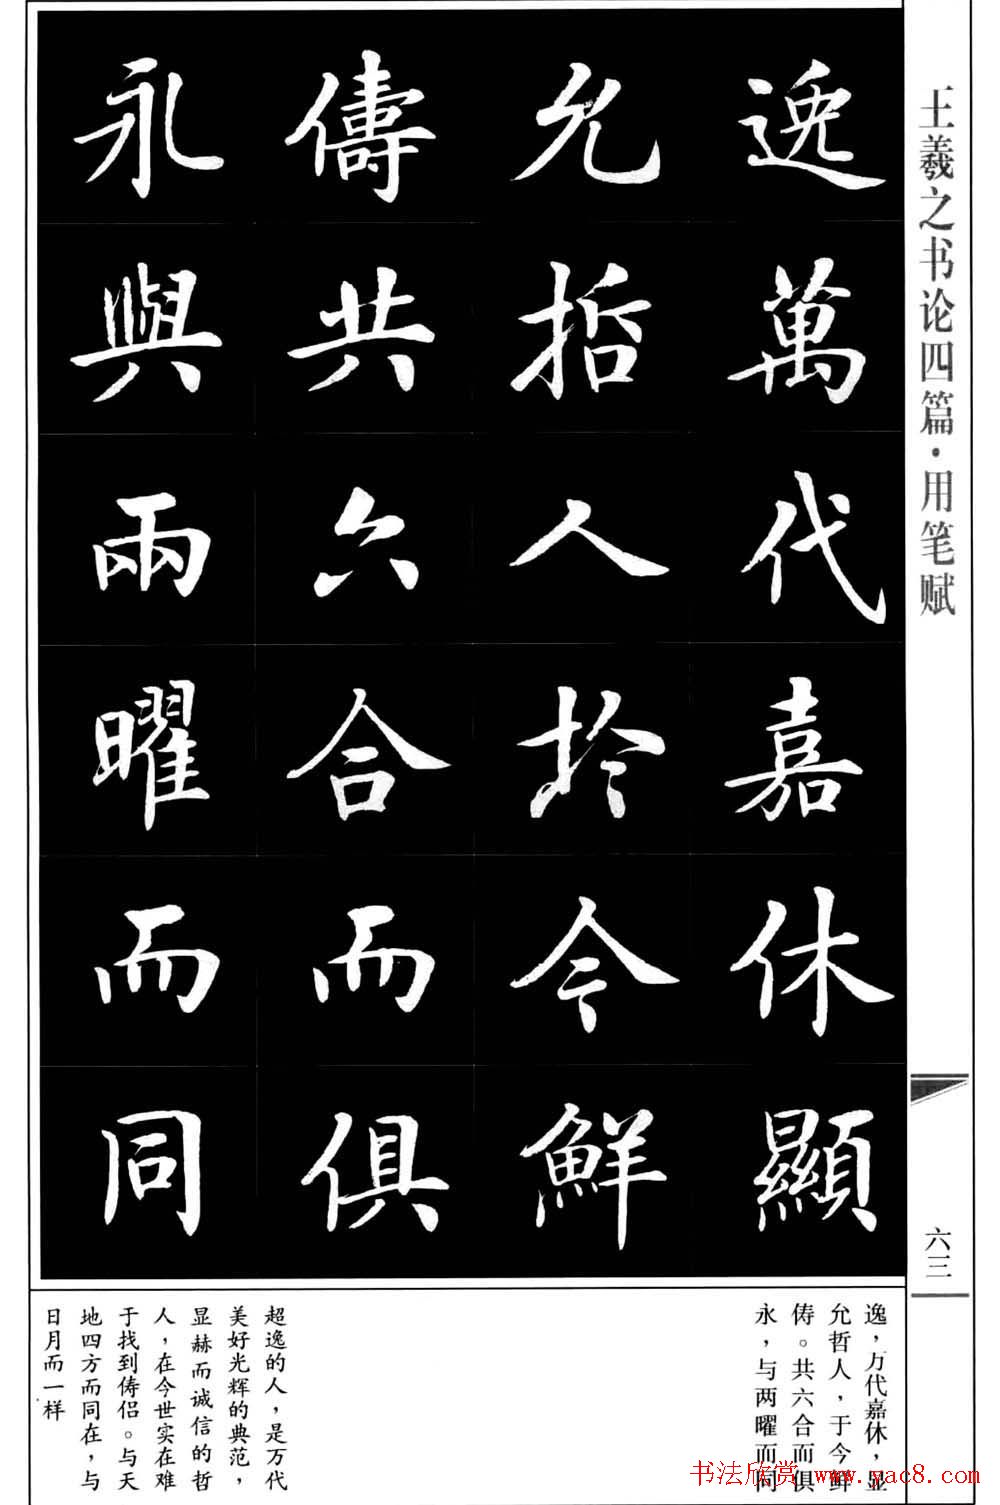 王羲之书论四篇·用笔赋
逸萬代嘉休顯
允哲人於今鮮
儔共六合而俱
永與兩曜而同
六三
逸，万代嘉休，显
允哲人，于今鲜
俦。共六合而俱
永，与两曜而同
超逸的人，是万代
美好光辉的典范，
显赫而诚信的哲
人，在今世实在难
于找到俦侣。与天
地四方而同在，与
日月而一样
书法欣赏 www.yac8.com